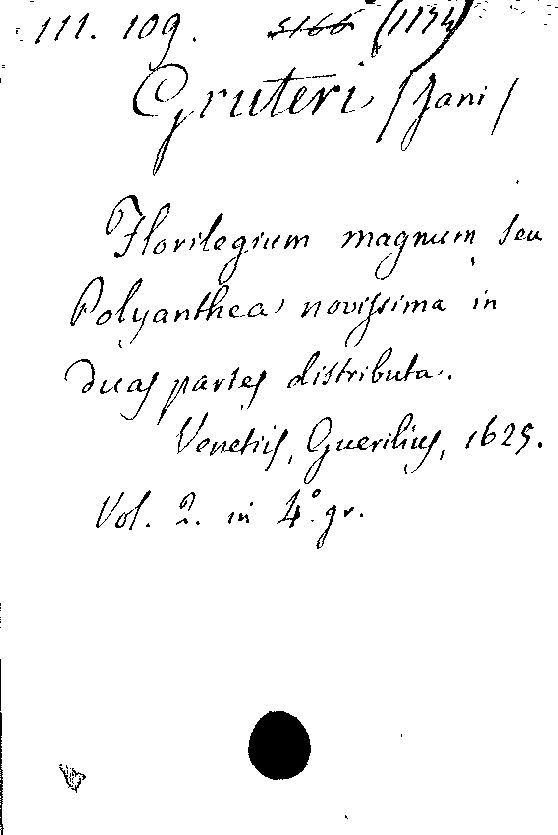 111. 109. 5166 (1134)
Gruteri /Jani/
Florilegium magnum seu
Polyanthea novissima in
duas partes distributa.
Venetiis, Guerilius, 1625.
Vol. 2. in 4° gr.